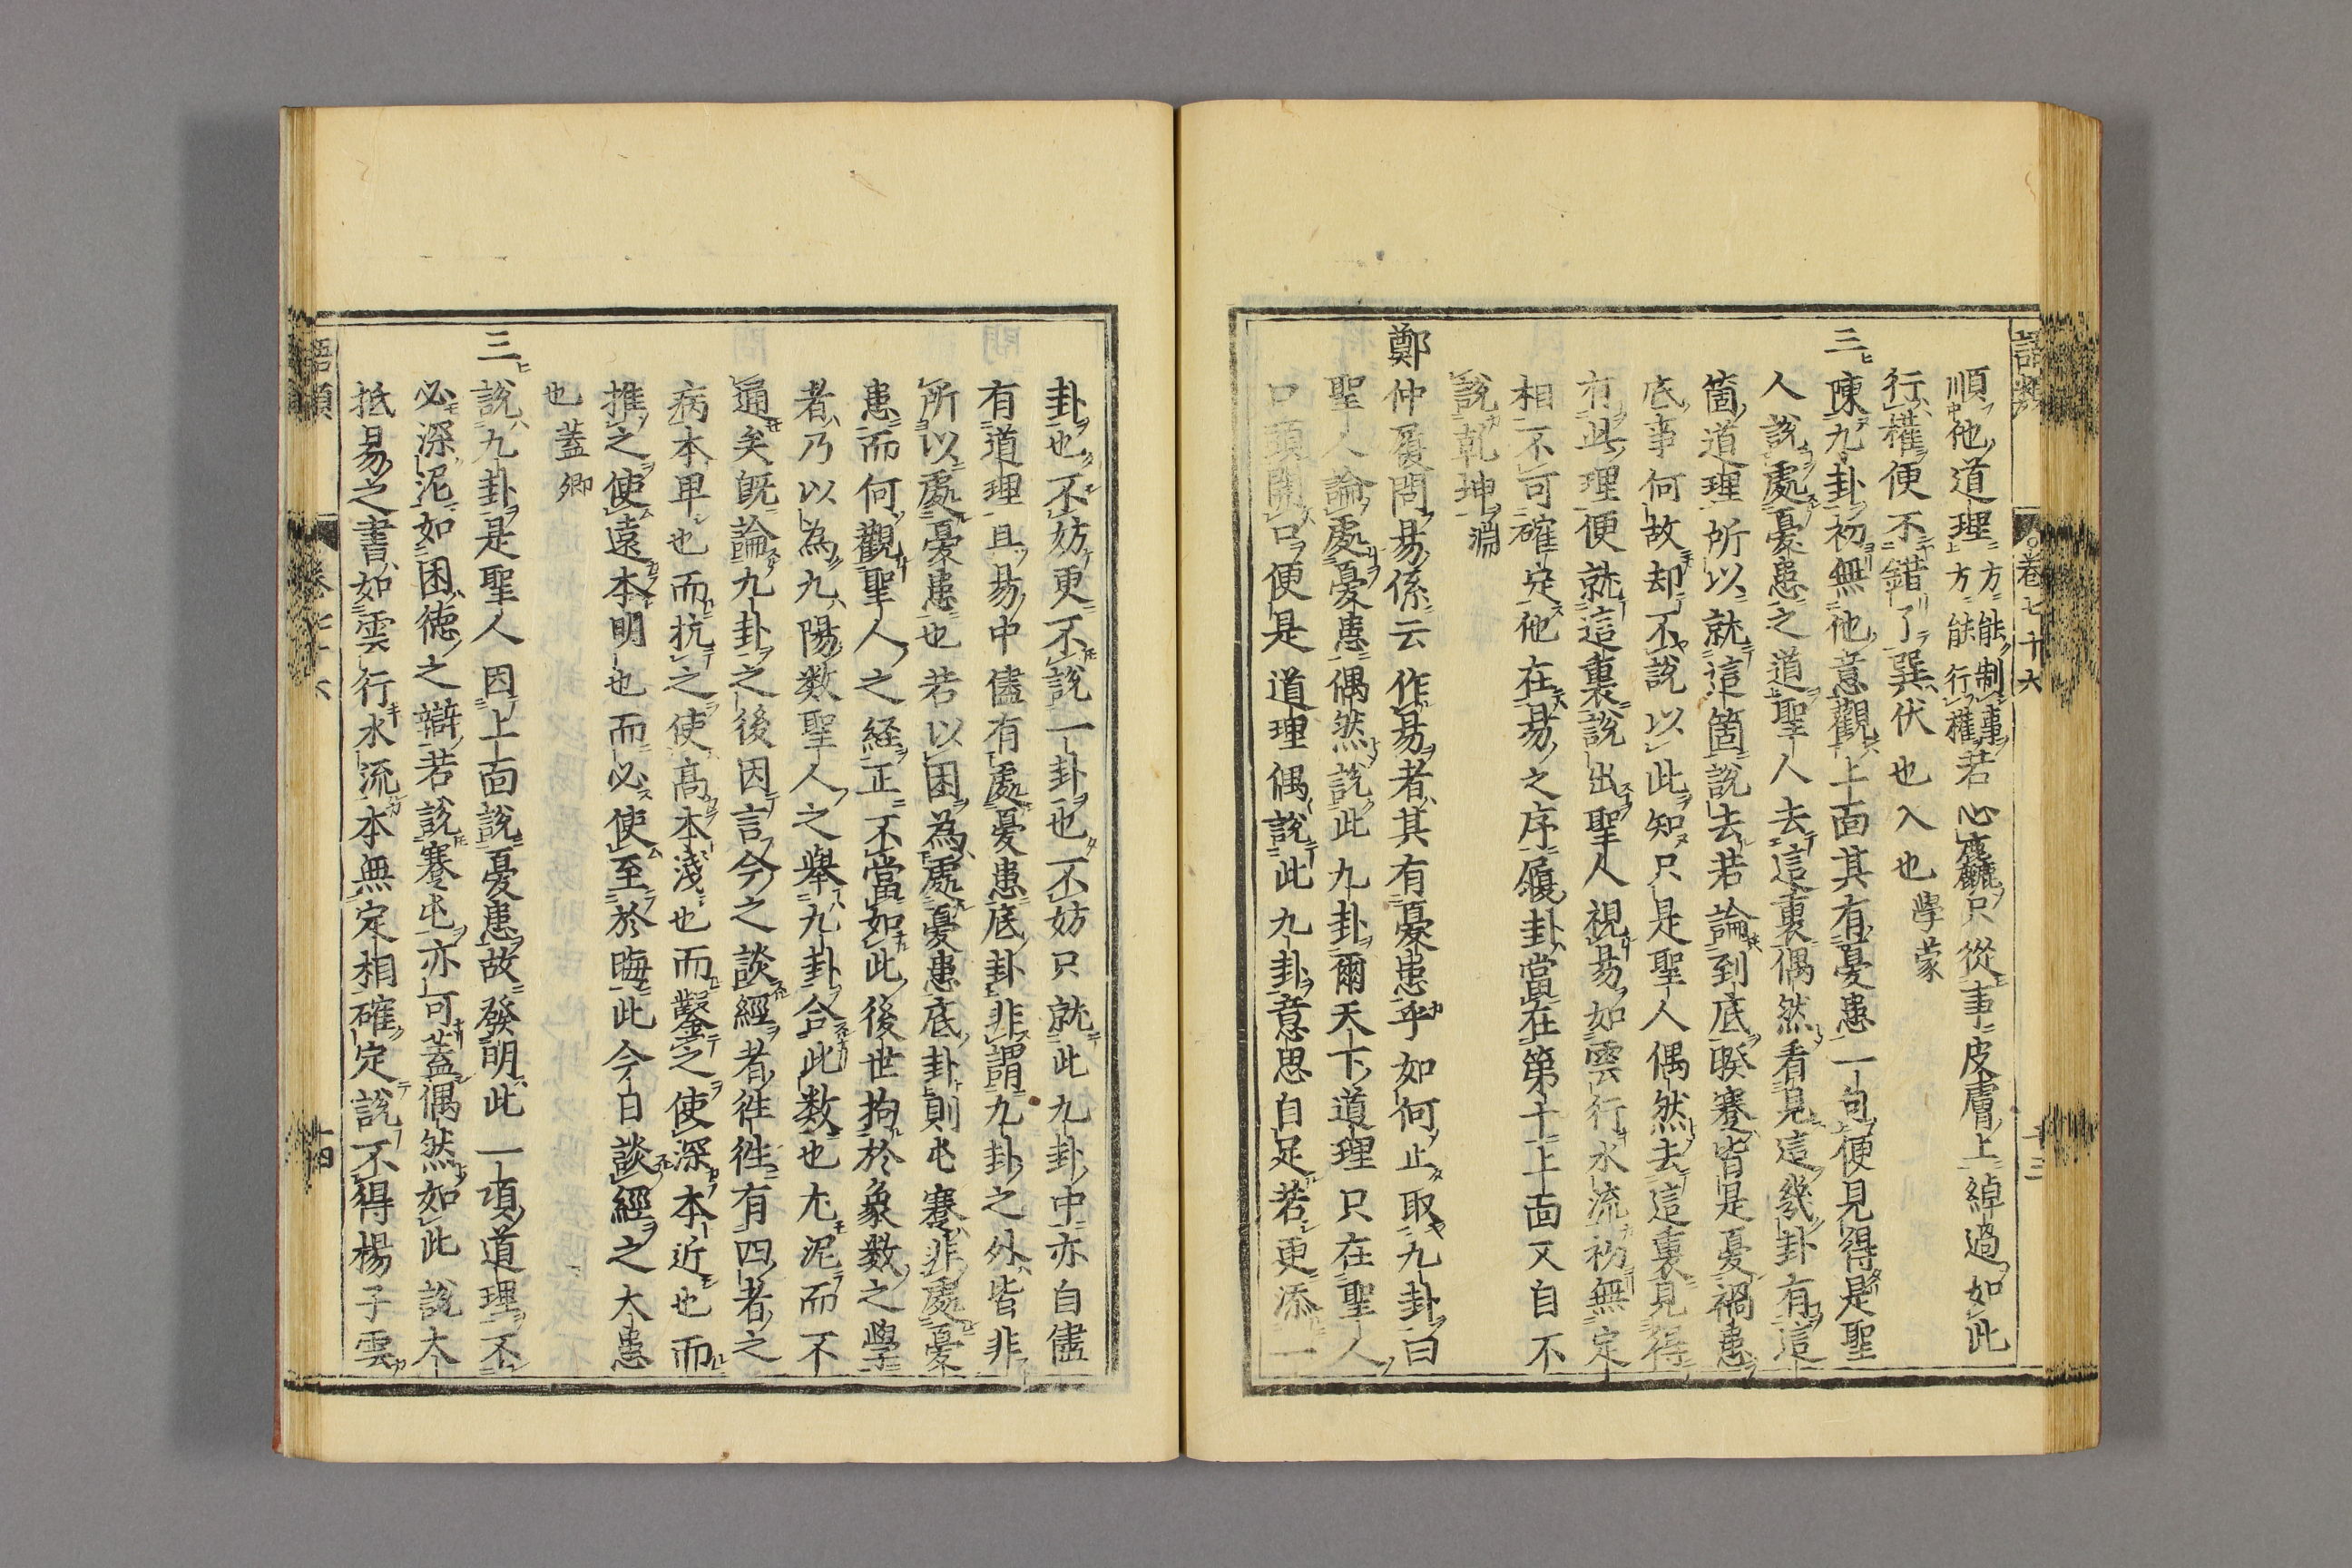 語類 卷七十六 十三
順他道理方能制事方能行權若心麤只從事皮膚上綽過如此
行權便不錯了巽伏也入也學蒙
三陳九卦初無他意觀上面其有憂患一句便見得是聖
人說處憂患之道聖人去這裏偶然看見這幾卦有這
箇道理所以就這箇說去若論到底睽蹇皆是憂禍患
底事何故却不說以此知只是聖人偶然去這裏見得
有此理便就這裏說出聖人視易如雲行水流初無定
相不可確定他在易之序履卦當在第十上面又自不
說乾坤淵
鄭仲履問易係云作易者其有憂患乎如何止取九卦曰
聖人論處憂患偶然說此九卦爾天下道理只在聖人
口頭開口便是道理偶說此九卦意思自足若更添一
卦也不妨更不說一卦也不妨只就此九卦中亦自儘
有道理且易中儘有處憂患底卦非謂九卦之外皆非
所以處憂患也若以困為處憂患底卦則屯蹇非處憂
患而何觀聖人之經正不當如此後世拘於象數之學
者乃以為九陽数聖人之舉九卦合此数也尤泥而不
通矣既論九卦之後因言今之談經者徃徃有四者之
病本卑也而抗之使高本淺也而鑿之使深本近也而
推之使遠本明也而必使至於晦此今日談經之大患
也蓋卿
三說九卦是聖人因上面說憂患故發明此一項道理不
必深泥如困德之辯若說蹇屯亦可蓋偶然如此說大
抵易之書如雲行水流本無定相確定說不得楊子雲
語類 卷七十六 十四